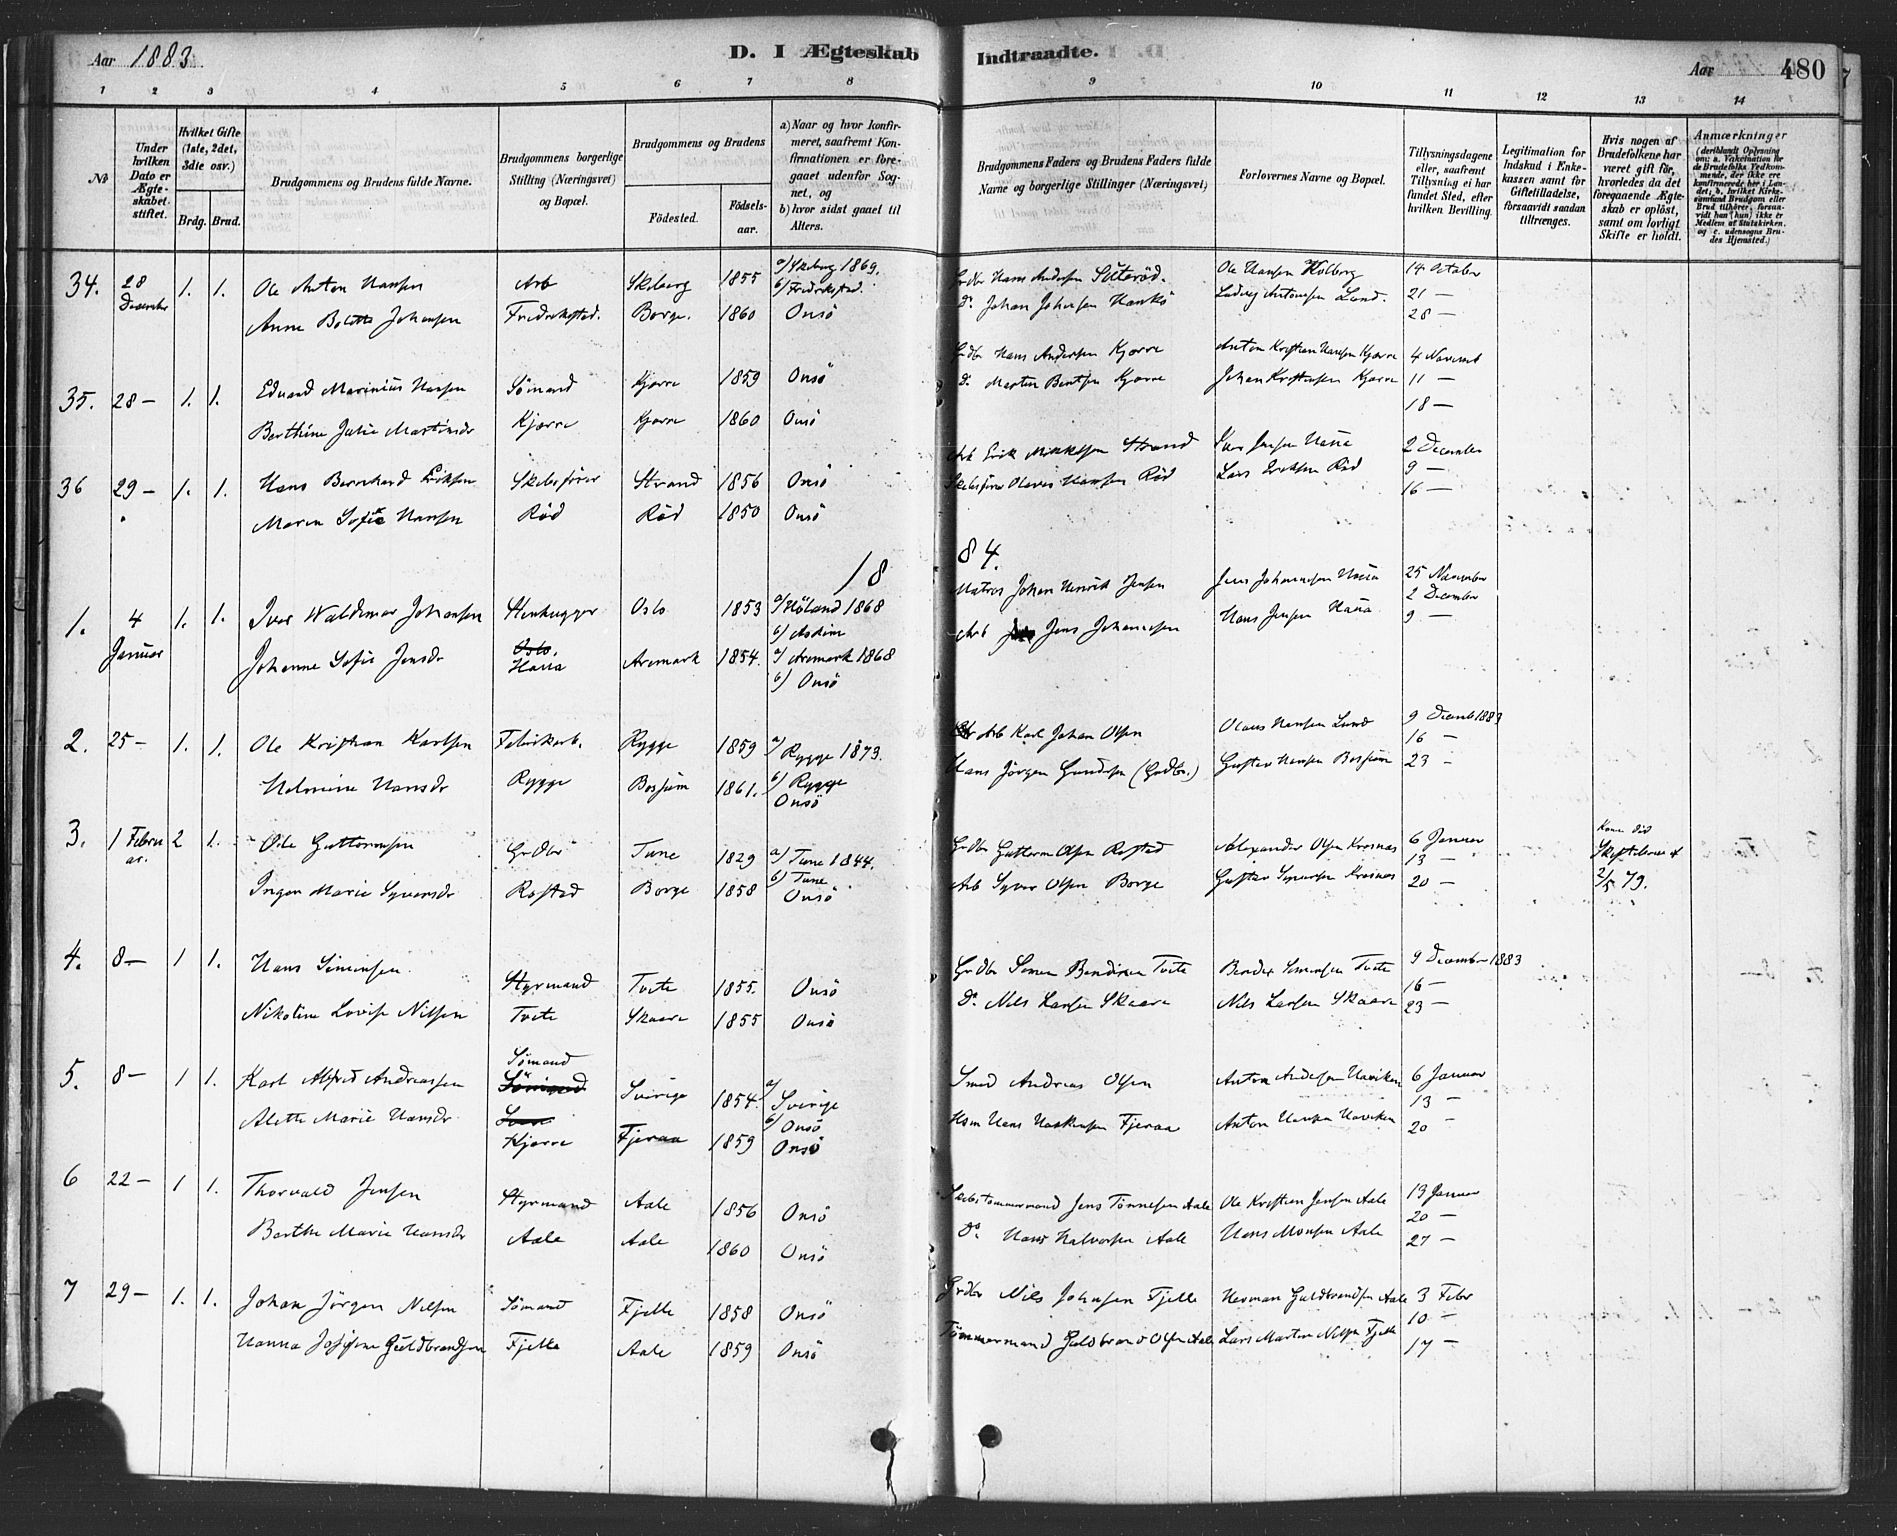 Aar 1883.
D. I Ægteskab Indtraadte.
Aar 480
1 2 3 4 5 6 7 8 9 10 11 12 13 14
№
Under hvilken Dato er Ægteskabet stiftet.
Hvilket Gifte (1ste, 2det, 3die osv.)
Brdg. Brud.
Brudgommens og Brudens fulde Navne.
Brudgommens borgerlige Stilling (Næringsvei) og Bopæl.
Brudgommens og Brudens
Fødested. Fødsels-aar.
a) Naar og hvor konfirmeret, saafremt Konfirmationen er foregaaet udenfor Sognet, og
b) hvor sidst gaaet til Alters.
Brudgommens Faders og Brudens Faders fulde Navne og borgerlige Stillinger (Næringsvei)
Forlovernes Navne og Bopæl.
Tillysningsdagene eller, saafremt Tillysning ei har fundet Sted, efter hvilken Bevilling.
Legitimation for Indskud i Enkekassen samt for Giftetilladelse, forsaavidt saadan tiltrænges.
Hvis nogen af Brudefolkene har været gift før, hvorledes da det foregaaende Ægteskab er opløst, samt om lovligt Skifte er holdt.
Anmærkninger
34. 28 December 1. 1. Ole Anton Hansen Arb Skeberg 1855 a) Skeberg 1869. b) Fredrikstad. Grdbr Hans Andersen Solterød. Ole Hansen Kolberg 14 October
Anne Bolette Johansen Fredrikstad. Borge. 1860 Onsö Do Johan Johansen Hankö Ludvig Antonsen Lund. 21 —
28 —
35. 28 — 1. 1. Edvard Marinius Hansen Sömand Kjærre 1859 Onsö Grdbr Hans Andersen Kjærre Anton Kristian Hansen Kjærre 4 Novemb
Berthine Julie Martinsdr Kjærre Kjærre 1860 Onsö Do Martin Bentsen Kjærre Johan Kristensen Kjærre 11 —
18 —
36 29 — 1. 1. Hans Bernhard Eriksen Skibsförer Strand 1856 Onsö Arb Erik Mikkelsen Strand Jensen Haua 2 December
Maren Sofie Hansen Röd Röd 1850 Onsö Skibsförer Olaves Hansen Röd Lars Eriksen Röd 9 —
16 —
1884.
1. 4 Januar 1. 1. Iver Waldemar Johansen Stenhugger Oslo 1853 a) Höland 1868 b) Askim Matros Johan Henrik Jensen Jens Johannesen Haua 25 November
2 December
Johanne Sofie Jensdr Oslo. Haua Aremark 1854. a) Aremark 1868 b) Onsö Arb Jens Johannesen Hans Jensen Haua 9 —
2. 25 — 1. 1. Ole Kristian Karlsen Fabrikarb. Rygge 1859 a) Rygge 1873. b) Rygge Arb Karl Johan Olsen Olaus Hansen Lund 9 Decemb 1883
16 —
Helmine Hansdr Rygge Bossum 1861. Onsö Hans Jörgen Gundersen (Grdbr.) Gustav Hansen Bossum 23 —
3. 1 Februar. 2 1. Ole Guttormsen Grdbr Tune 1829 a) Tune 1844. b) Tune Grdbr Guttorm Olsen Rostad Alexander Olsen Krosnæs 6 Januar
13 —
Kone död
2/5 79.
Inger Marie Syversdr Rostad Borge 1858 Onsö Arb Syver Olsen Borge Gustav Syversen Krosnæs 20 —
4. 8 — 1 1. Hans Simensen. Styrmand Tvete 1855. Onsö Grdbr Simen Bendixen Tvete Bendix Simensen Tvete 9 December 1883
16 —
Nikoline Lovise Nilsen Tvete Skaare 1855 Onsö Do Nils Larsen Skaare Nils Larsen Skaare 23 —
5. 8 — 1 1. Karl Alfred Andreassen Sömand Sömand Sverige 1854. a) Sverige b) Onsö Smed Andreas Olsen Anton Andersen Haviken 6 Januar
13 —
Alette Marie Hansdr Kjærre Fjeraa 1859 Onsö Hsm Hans Haskensen Fjeraa Anton Hansen Haviken 20 —
6 22 — 1 1. Thorvald Jensen Styrmand Aale 1856 Onsö Skibstömmermand Jens Tönnesen Aale Ole Kristian Jensen Aale 13 Januar
20 —
Berthe Marie Hansdr Aale Aale 1860 Onsö Do Hans Halvorsen Aale Hans Monsen Aale 27 —
7 29 — 1. 1. Johan Jörgen Nilsen Sömand Fjelle 1858 Onsö Grdbr Nils Johnsen Fjelle Herman Guldbrandsen Aale 3 Febr
10 —
Hanna Josefine Guldbrandsen Fjelle Aale 1859 Onsö Tömmermand Guldbrand Olsen Aale Lars Martin Nilsen Fjelle 17 —